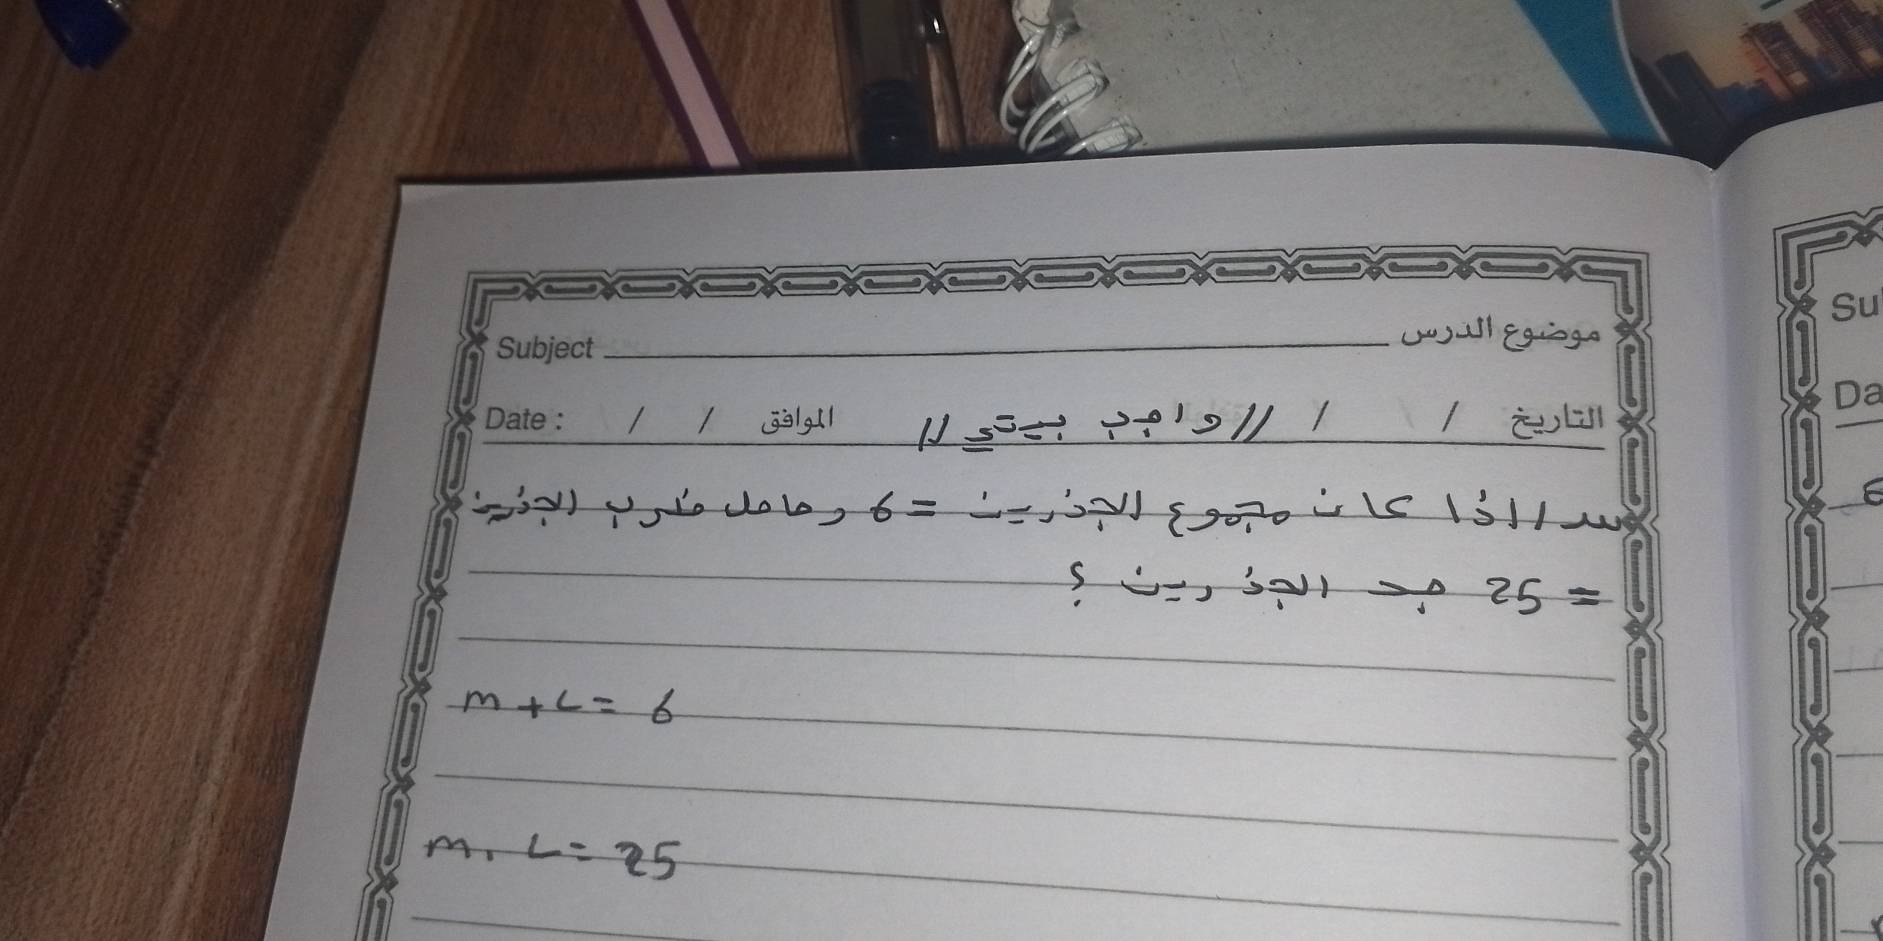 Subject موضوع الدرس
Date : / / الموافق // واجب بيتي // / / التاريخ
س/ اذا كان مجموع الجذرين = 6 وحاصل ضرب الجذرين
= 25 جد الجذرين ؟
m + L = 6
m . L = 25
Su
Da